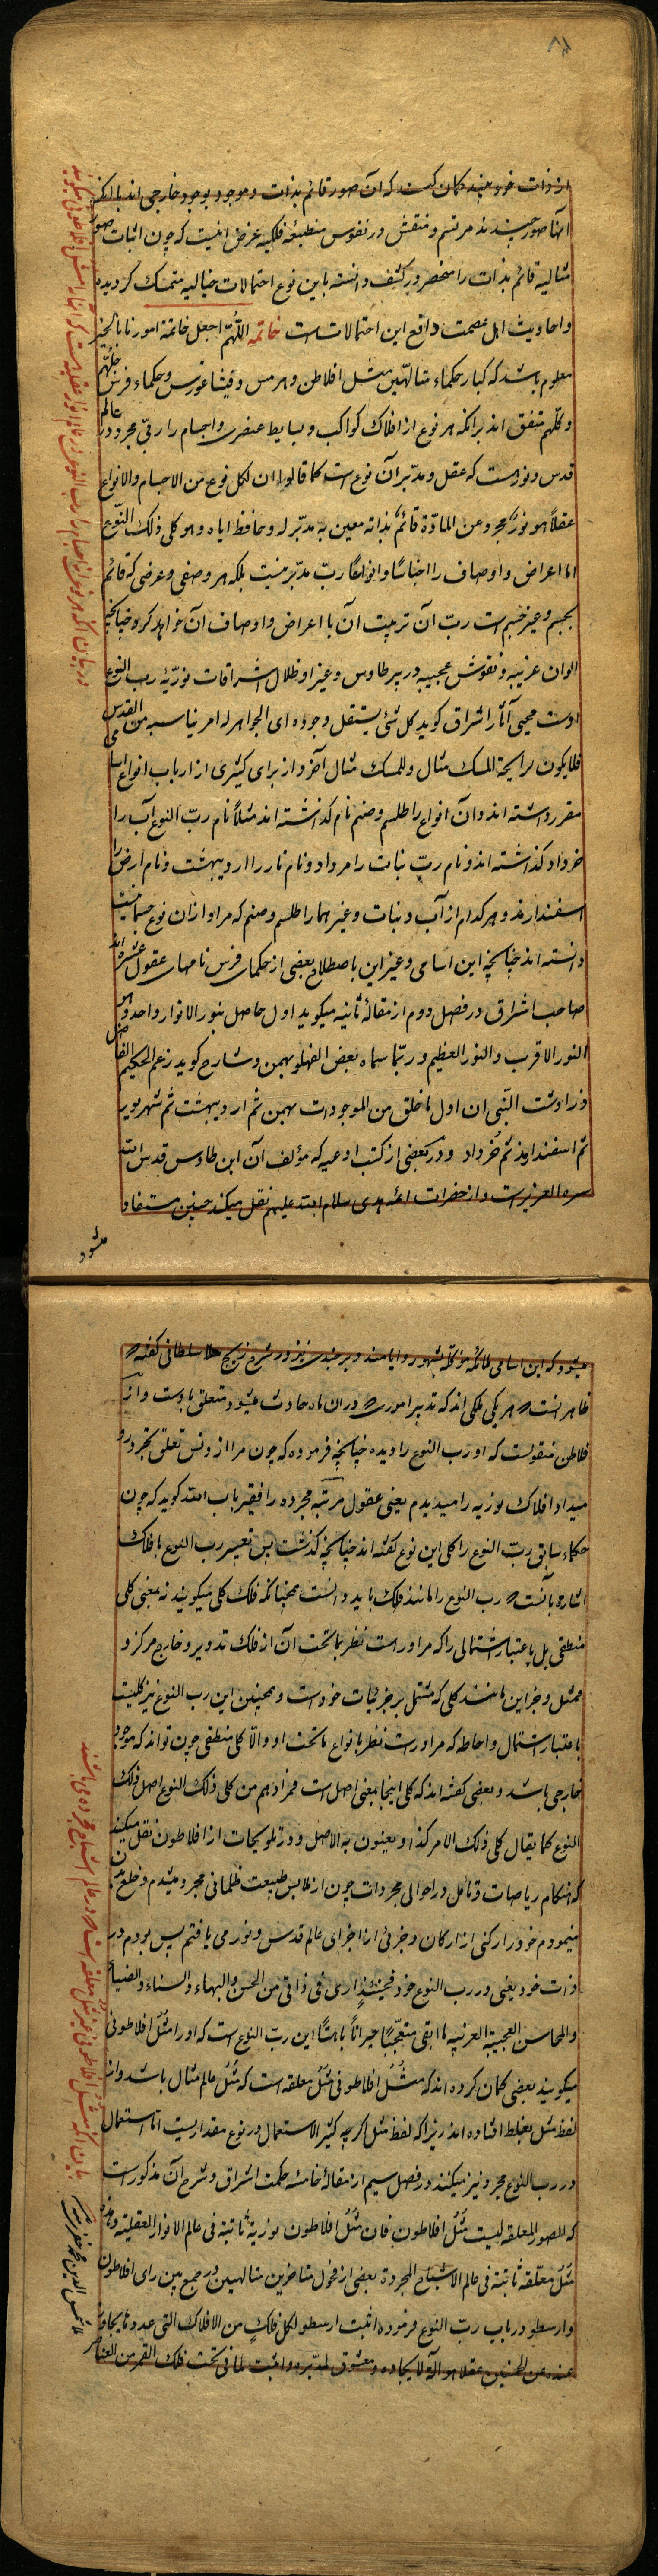 از ذات خود بیند گمان کرد که آن صور قائم بذات و موجود بوجود خارجی اند با آنکه
آنها صور چیند مرتسم و منتقش در نفوس منطبعه فلکیه غرض اینست که چون اثبات صور
مثالیه قائم بذات را منحصر در کشف دانسته باین نوع احتمالات خیالیه متمسک گردیده
و احادیث اهل عصمت دافع این احتمالات است خاتمه اللّهمّ اجعل خاتمة امورنا بالخیر
معلوم باشد که کبار حکماء متالهین مثل افلاطن و هرمس و فیثاغورس و حکماء فرس جلّهم
و کلّهم متفق اند برانکه هر نوع از افلاک کواکب و بسایط عنصری و اجسام را ربّی مجرد در عالم
قدس و نورست که عقل و مدبّر آن نوع است کما قالوا ان لکل نوع من الاجسام و الانواع
عقلاً هو نورٌ مجرد عن المادّة قائم بذاته معین به مدبّر له و حافظ ایاه و هو کلی ذلک النّوع
اما اعراض و اوصاف را اجناسًا و انواعًا ربّ مدبّر نیست بلکه هر وصفی و عرضی که قائم
بجسم و غیر جسم است ربّ آن تربیت آن با اعراض و اوصاف آن خواهد کرد چنانچه
الوان غریبه و نقوش عجیبه در پر طاوس و غیر او ظلال اشراقات نوریّه رب النوع
اوست محیی آثار اشراق گوید کل شئ یستقل وجوده ای الجواهر له امر یناسبه من القدس
فلا یکون لرایحة المسک مثال و للمسک مثال آخر و از برای کثیری از ارباب انواع اسامی
مقرر داشته اند و آن انواع را طلسم و صنم نام گذاشته اند مثلاً نام ربّ النوع آب را
خرداد گذاشته اند و نام ربّ نبات را مرداد و نام نار را اردیبهشت و نام ارض را
اسفندارمذ و هر کدام از آب و نبات و غیر هما را طلسم و صنم که مراد ازان نوع جسمانیست
دانسته اند چنانچه این اسامی و غیر این باصطلاح بعضی از حکمای فرس نامهای عقول عشره اند
صاحب اشراق در فصل دوم از مقالهٔ ثانیه میگوید اول حاصل بنور الانوار واحد و هو
النور الاقرب و النور العظیم و ربّما سماه بعض الفهلویه بهمن و شارح گوید زعم الحکیم الفاضل
زرادشت النّبی ان اول ما خلق من الموجودات بهمن ثم اردیبهشت ثم شهریور
ثم اسفندارمذ ثم خُرداد و در بعضی از کتب ادعیه که مؤلف آن ابن طاوس قدس الله
سره العزیز است و از حضرات ائمه هدی سلام الله علیهم نقل میکند چنین مستفاد
میشود
میشود که این اسامی ملائکه موکله بشهور و ایامند و برجندی نیز در شرح زیج سلطانی گفته
ظاهر انست که هر یکی ملکی اند که تدبیر اموری که دران ماه حادث میشود متعلق باوست و از
فلاطن منقولست که او رب النوع را دیده چنانچه فرموده که چون مرا از و نس تعلق تجرد رو
میداد افلاک نوریه را میدیدم یعنی عقول مرتبه مجرده را فقیر باب الله گوید که چون
حکماء سابق ربّ النوع را کلی این نوع گفته اند چنانچه گذشت پس تعبیر رب النوع بافلاک
اشاره بانست که رب النوع را مانند فلک باید دانست همچنانکه فلک کلی میگویند نه بمعنی کلی
منطقی بل باعتبار اشتمالی را که مراوراست نظر بما تحت آن از فلک تدویر و خارج مرکز و
ممثل و جز این مانند کلی که مشتمل بر جزئیات خودست و همچنین این رب النوع نیز کلیست
باعتبار اشتمال و احاطه که مراوراست نظر بانواع ماتحت او و الّا کلی منطقی چون تواند که موجود
خارجی باشد و بعضی گفته اند که کلی اینجا بمعنی اصل است فمرادهم من کلی ذلک النوع اصل ذلک
النوع کما یقال کلی ذلک الامر کذا و یعنون به الاصل و در تلویحات از افلاطون نقل میکند
که هنگام ریاضات و تأمل در احوالی مجردات چون از ملابس طبیعت ظلمانی مجرد میشدم و خلع بدن
مینمودم خود را رکنی از ارکان و جزئی از اجزای عالم قدس و نور می یافتم پس بودم در
ذات خود یعنی در رب النوع خود فحینئذٍ اری فی ذاتی من الحسن و البهاء و السناء و الضیاء
و المحاسن العجیبة الغریبه ما ابقی متعجّبًا حیراناً باهتًا این ربّ النوع است که او را مُثُل افلاطونی
میگویند بعضی گمان کرده اند که مُثُل افلاطونی مُثُل معلقه است که مُثُل عالم مثال باشد و از
لفظ مثل بغلط افتاده اند زیرا که لفظ مثل اگر چه کثیر الاستعمال در نوع مقداریست اما استعمال
در رب النوع مجرد نیز میکنند و در فصل سیم از مقالهٔ خامسه حکمت اشراق و شرح آن مذکور است
که للصور المعلقه لیست مُثُل افلاطون فان مُثُل افلاطون نوریة ثابتة فی عالم الانوار العقلیة و هذه
مُثُل معلّقه ثابتة فی عالم الاشباح المجردة بعضی از فحول متاخرین متالهین در جمع بین رای افلاطون
و ارسطو در باب ربّ النوع فرموده اثبت ارسطو لکل فلکٍ من الافلاک التی عددها یجاوز
عنده عن الخمسین عقلا هو آلة لایجاده و معشوق لمدبّره و اثبت لما فی تحت فلک القمر من العناصر